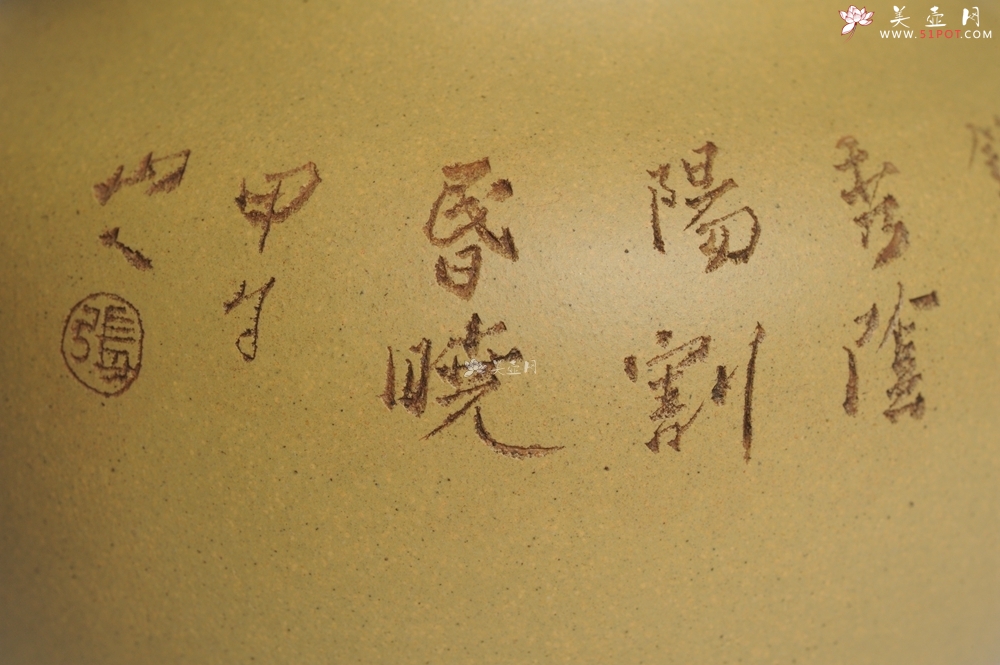 秀陰
陽割
昏曉
甲午
張
美壶网
WWW.51POT.COM
美壶网